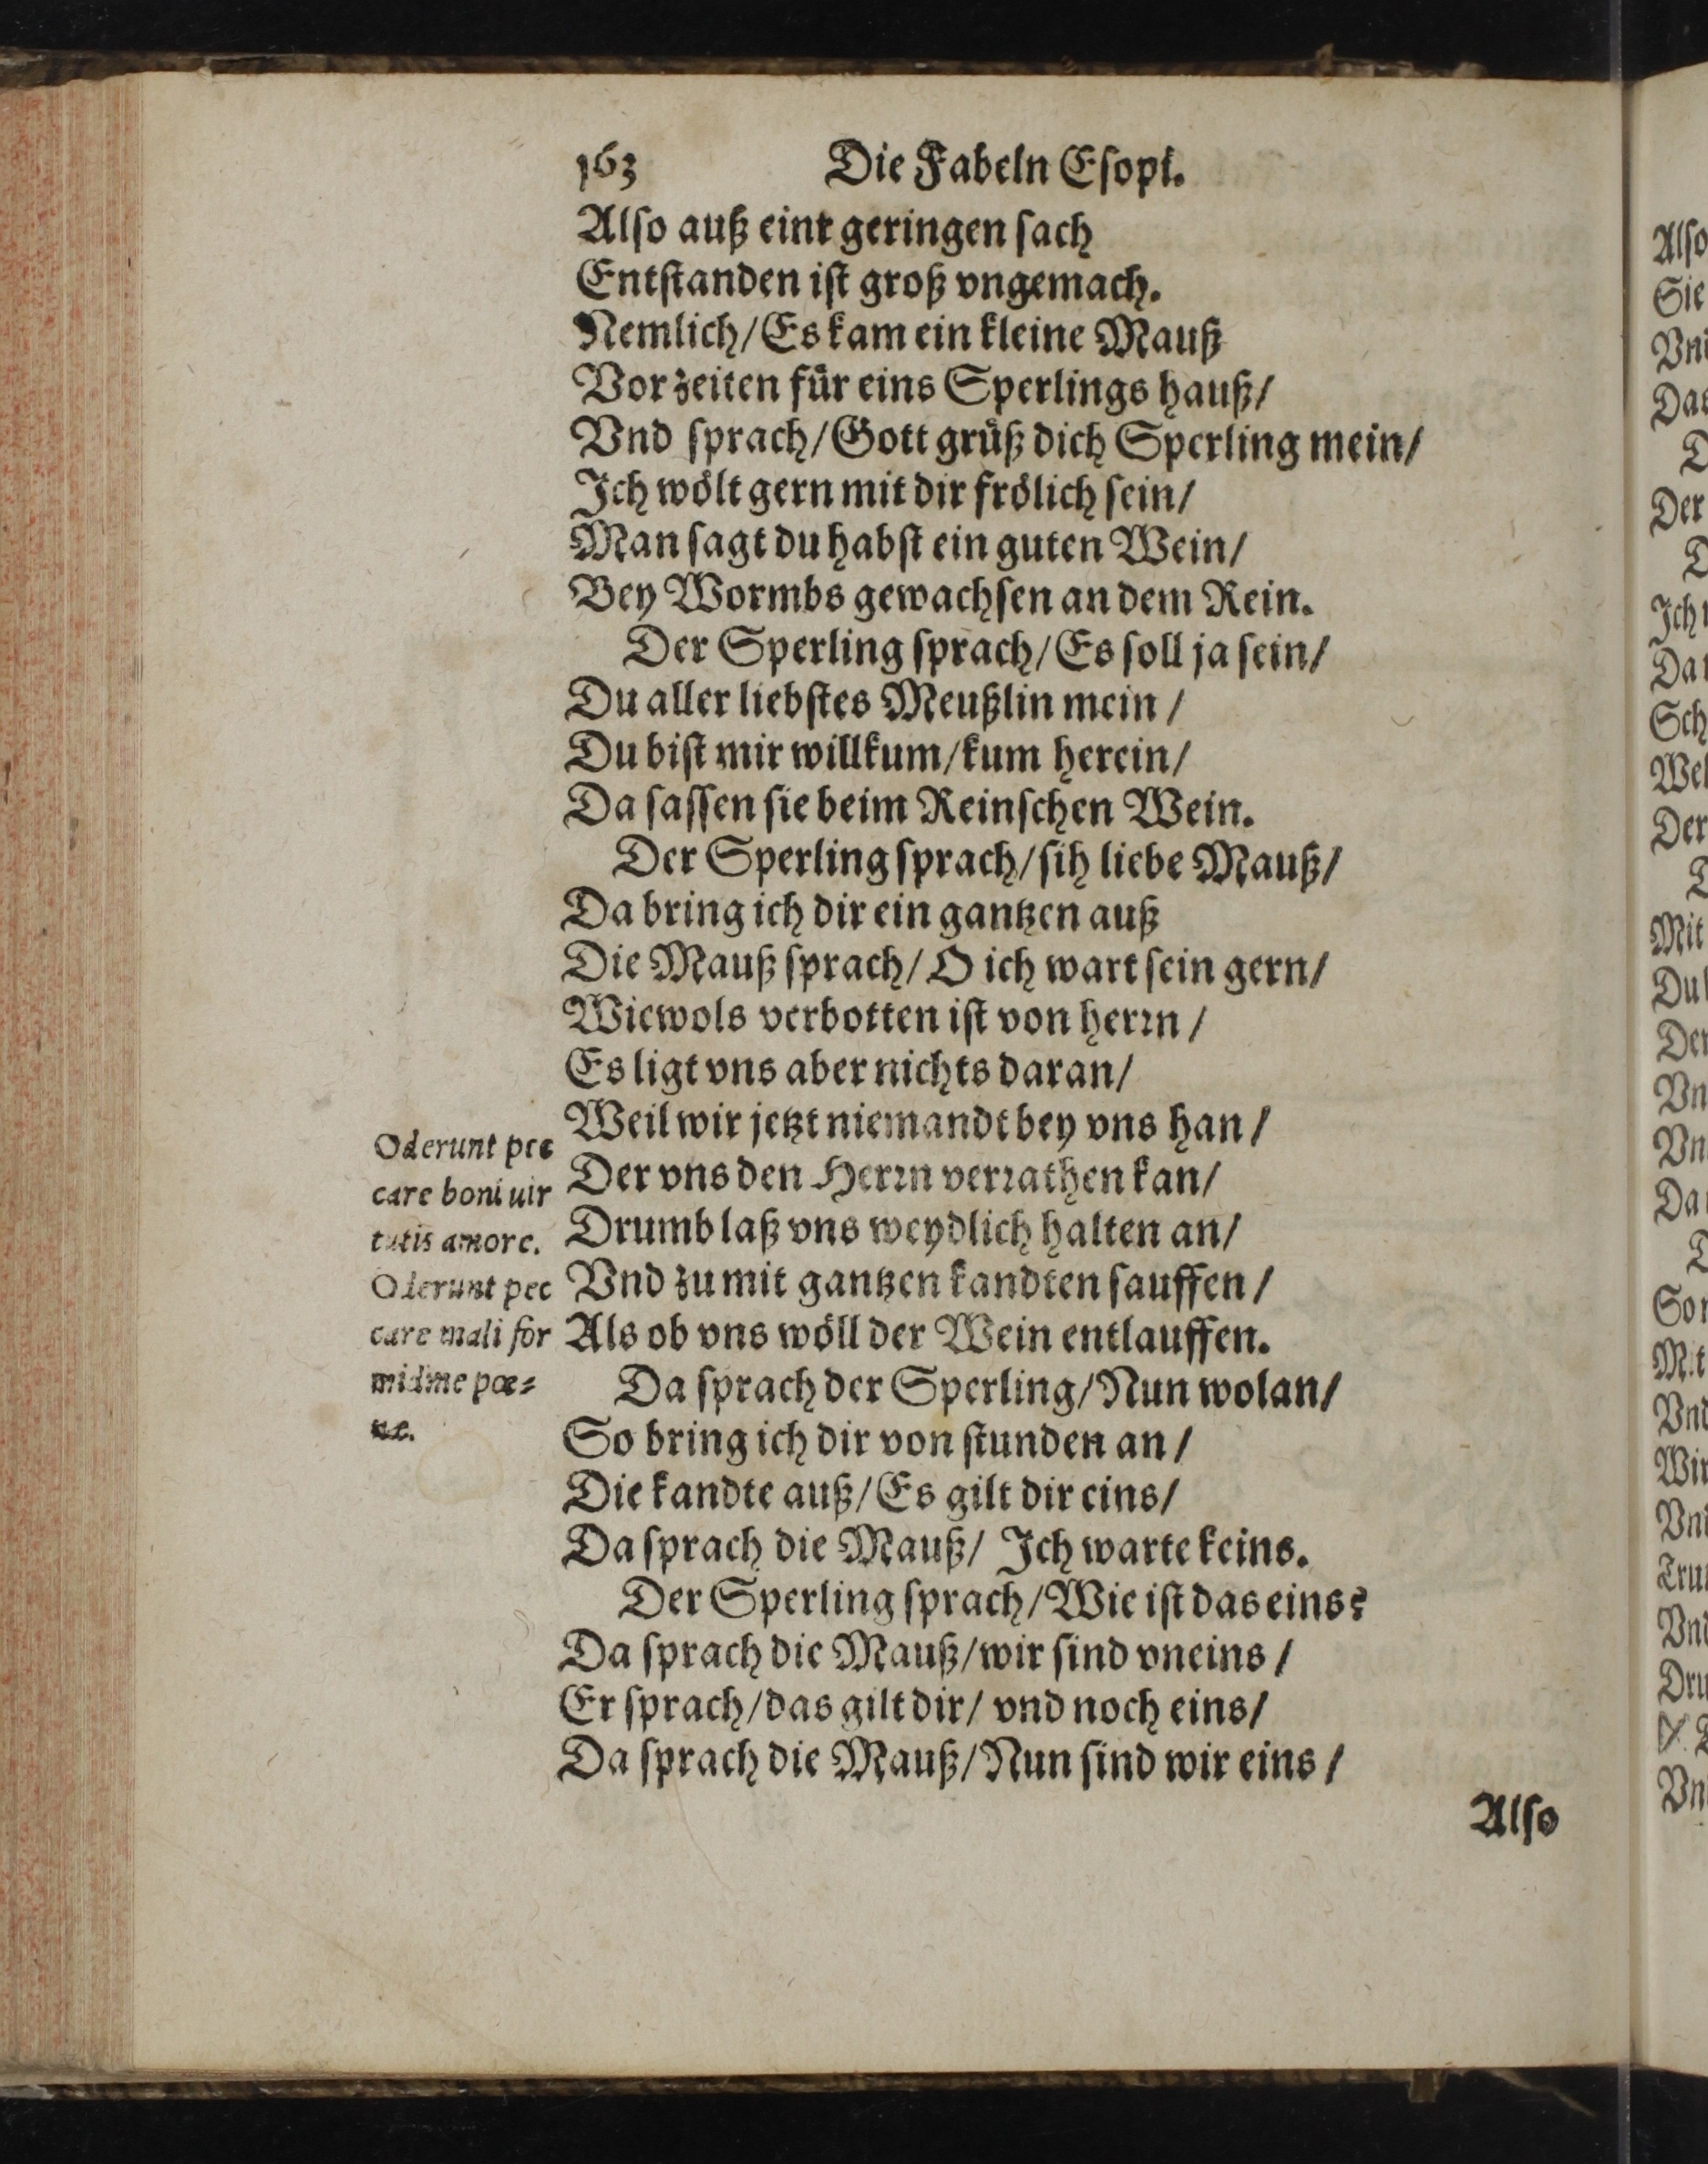 163 Die Fabeln Eſopi.
Alſo auß einr geringen ſach
Entſtanden iſt groß vngemach.
Nemlich/Es kam ein kleine Mauß
Vor zeiten für eins Sperlings hauß/
Vnd ſprach/Gott grüß dich Sperling mein/
Ich wölt gern mit dir frölich ſein/
Man ſagt du habſt ein guten Wein/
Bey Wormbs gewachſen an dem Rein.
Der Sperling ſprach/Es ſoll ja ſein/
Du aller liebſtes Meußlin mein /
Du biſt mir willkum/kum herein/
Da ſaſſen ſie beim Reinſchen Wein.
Der Sperling ſprach/ſih liebe Mauß/
Da bring ich dir ein gantzen auß
Die Mauß ſprach/O ich wart ſein gern/
Wiewols verbotten iſt von herꝛn /
Es ligt vns aber nichts daran/
Weil wir jetzt niemandt bey vns han/
Der vns den Herꝛn verꝛathen kan/
Drumb laß vns weydlich halten an/
Vnd zu mit gantzen kandten ſauffen/
Als ob vns wöll der Wein entlauffen.
Da ſprach der Sperling/Nun wolan/
So bring ich dir von ſtunden an/
Die kandte auß/Es gilt dir eins/
Da ſprach die Mauß/ Ich warte keins.
Der Sperling ſprach/Wie iſt das eins?
Da ſprach die Mauß/wir ſind vneins /
Er ſprach/das gilt dir/ vnd noch eins/
Da ſprach die Mauß/Nun ſind wir eins /
Alſo
Oderunt pec
care boni uir
tutis amore.
Oderunt pec
care mali for
midine pœ⸗
næ.
Alſo
Sie
Der
Mit